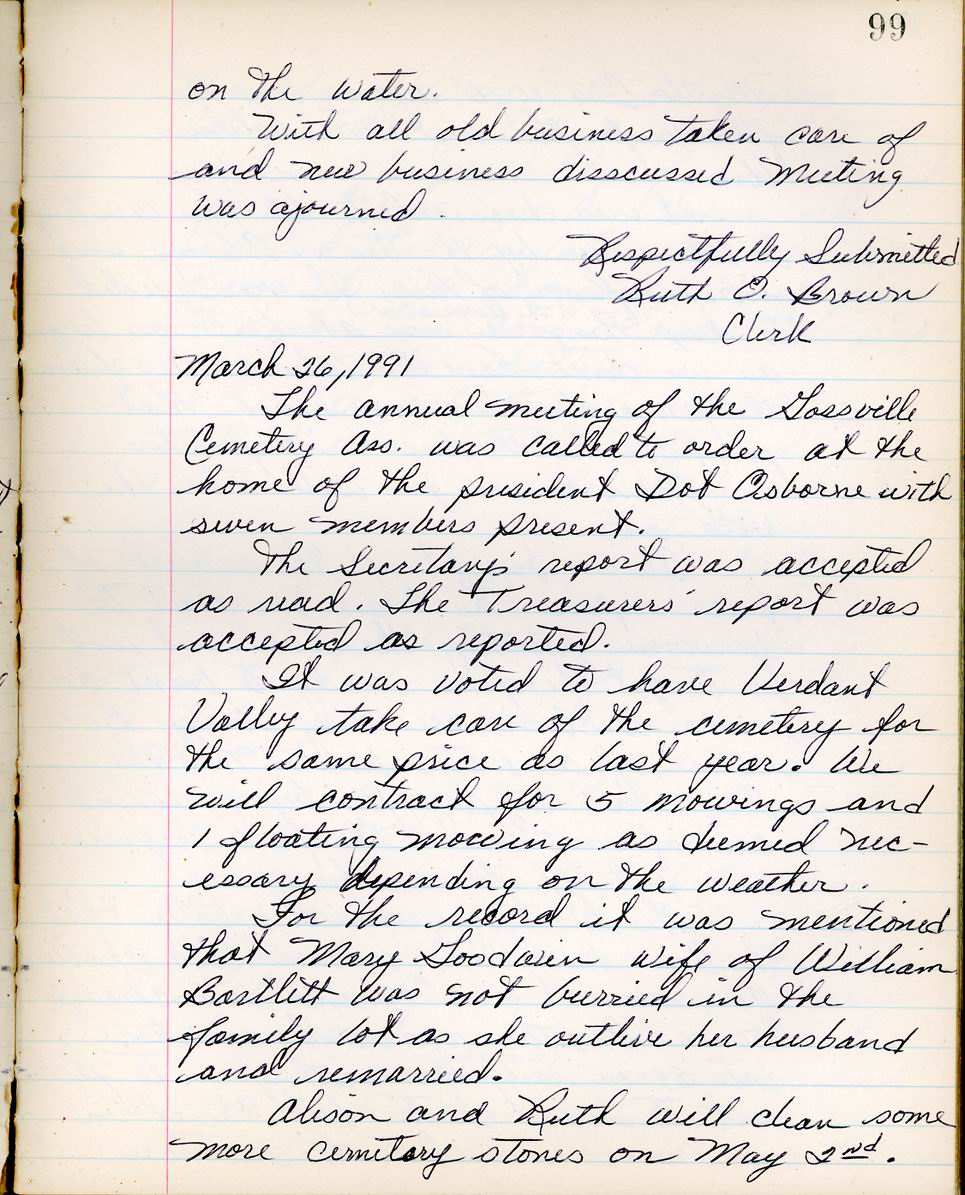 99
on the water.
With all old business taken care of
and new business disscussed Meeting
was ajourned.
Respectfully Submitted
Ruth O. Brown
Clerk
March 26, 1991
The annual meeting of the Gossville
Cemetery Ass. was called to order at the
home of the president Dot Osborne with
seven members present.
The Secretary's report was accepted
as read. The Treasurers' report was
accepted as reported.
It was voted to have Verdant
Valley take care of the cemetery for
the same price as last year. We
will contract for 5 mowings and
1 floating mowing as deemed nec-
essary depending on the weather.
For the record it was mentioned
that Mary Goodwin wife of William
Bartlett was not burried in the
family lot as she outlive her husband
and remarried.
Alison and Ruth will clean some
more cemetery stones on May 2nd.